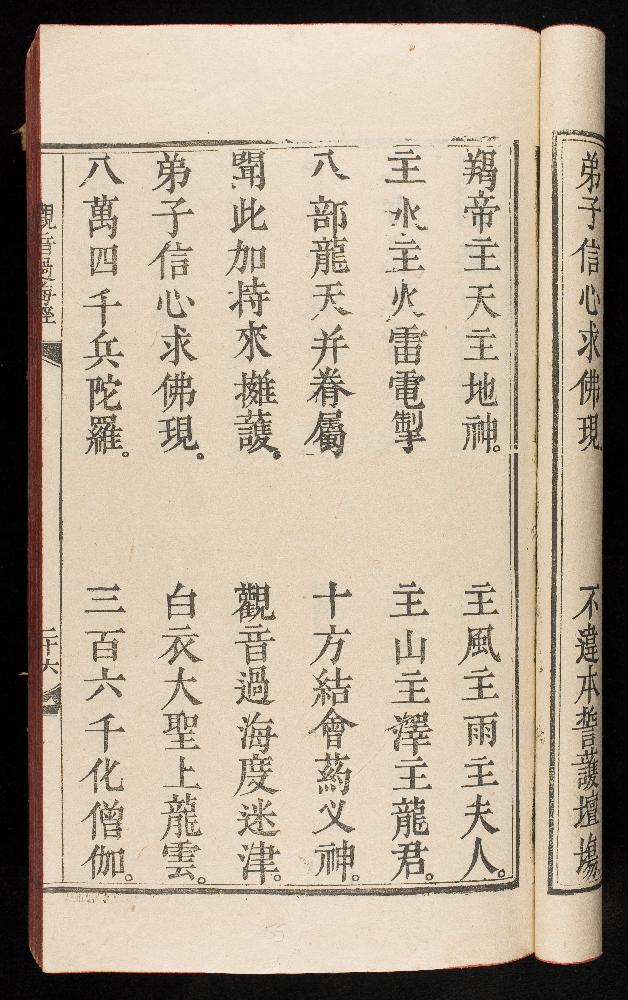 弟子信心求佛現 不違本誓護壇場
羯帝主天主地神。 主風主雨主夫人。
主水主火雷電掣 主山主澤主龍君。
八部龍天并眷屬 十方結會藥义神。
聞此加持來擁護。 觀音過海度迷津。
弟子信心求佛現。 白衣大聖上龍雲。
八萬四千兵陀羅。 三百六千化僧伽。
觀音過海經 二十六